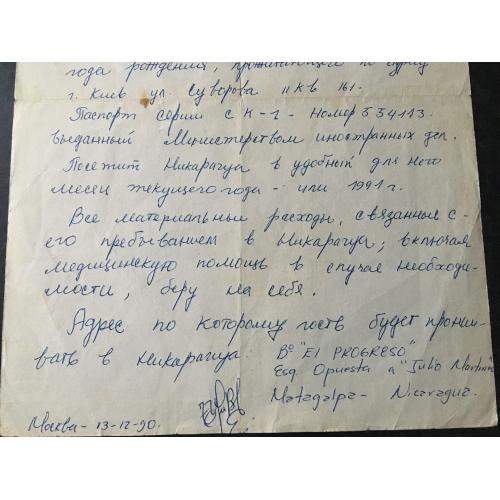 года рождения, проживающего по адресу
г. Киев ул. Суворова 11 кв 161.
Паспорт серии СК-1- Номер 534113
выданный Министерством иностранных дел.
Посетит Никарагуа в удобный для него
месяц текущего года - или 1991 г.
Все материальные расходы, связанные с
его пребыванием в Никарагуа, включая
медицинскую помощь в случае необходи-
мости, беру на себя.
Адрес по которому гость будет прожи-
вать в Никарагуа: Bº "El PROGRESO"
Esq. Opuesta a "Julio Martinez"
Matagalpa - Nicaragua.
Москва - 13-12-90.